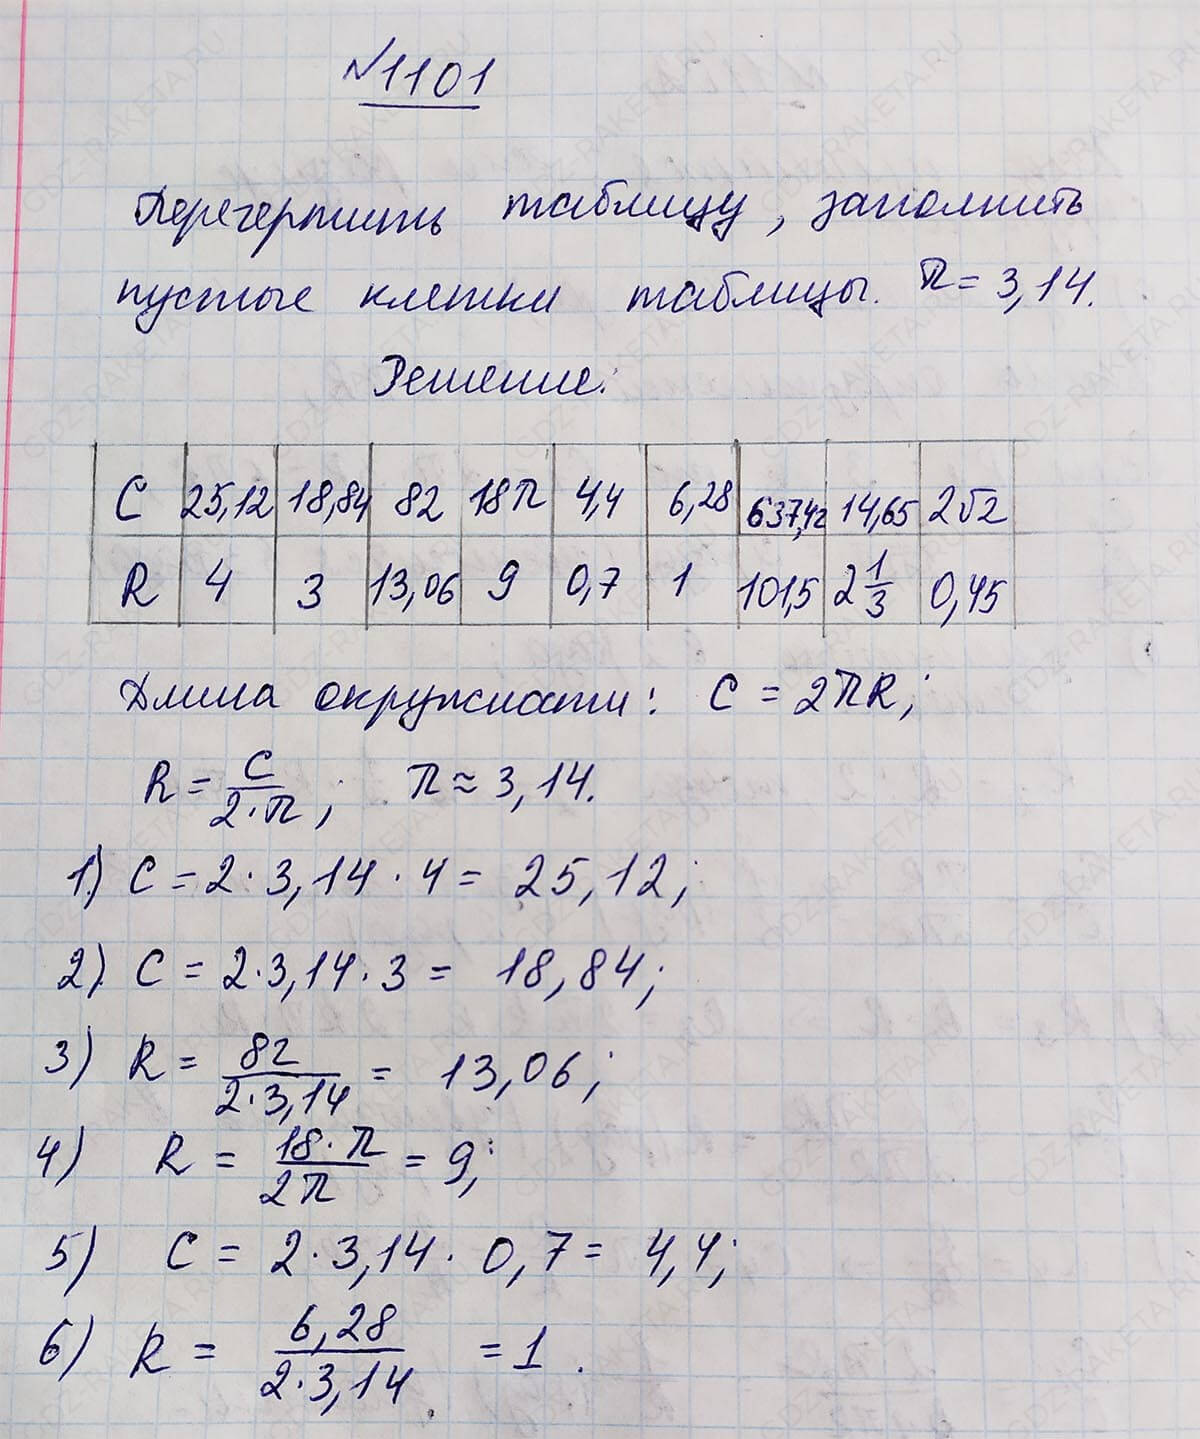 №1101
Перечертить таблицу, заполнить
пустые клетки таблицы. π = 3,14.
Решение:
C 25,12 18,84 82 18π 4,4 6,28 637,42 14,65 2√2
R 4 3 13,06 9 0,7 1 101,5 2 1/3 0,45
Длина окружности: C = 2πR;
R = C/2·π; π ≈ 3,14.
1) C = 2·3,14·4 = 25,12;
2) C = 2·3,14·3 = 18,84;
3) R = 82/2·3,14 = 13,06;
4) R = 18·π/2π = 9;
5) C = 2·3,14·0,7 = 4,4;
6) R = 6,28/2·3,14 = 1.
GDZ-RAKETA.RU